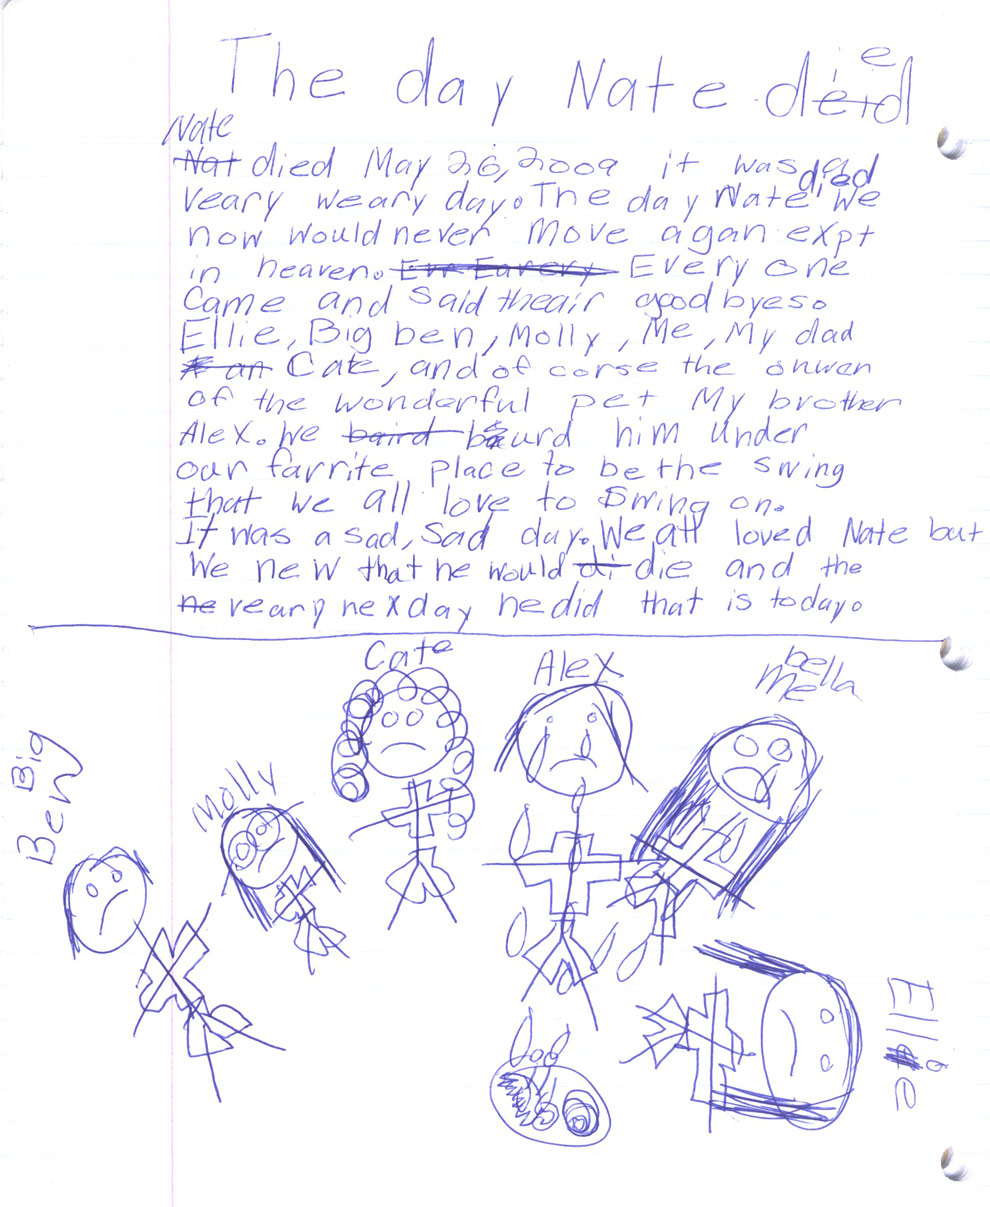 The day Nate died
Nate
Nat died May 26, 2009 it was a
veary weary day. The day Nate died we
now would never move agan expt
in heaven. Every one
came and said theair goodbyes.
Ellie, Big ben, Molly, Me, My dad
an Cate, and of corse the onwer
of the wonderful pet My brother
Alex. We baird burd him under
our farrite place to be the swing
that we all love to swing on.
It was a sad, sad day. We all loved Nate but
we new that he would di die and the
he veary nexday he did that is today.
Cate
Alex
bella
Me
Big
Ben
Molly
Ellie